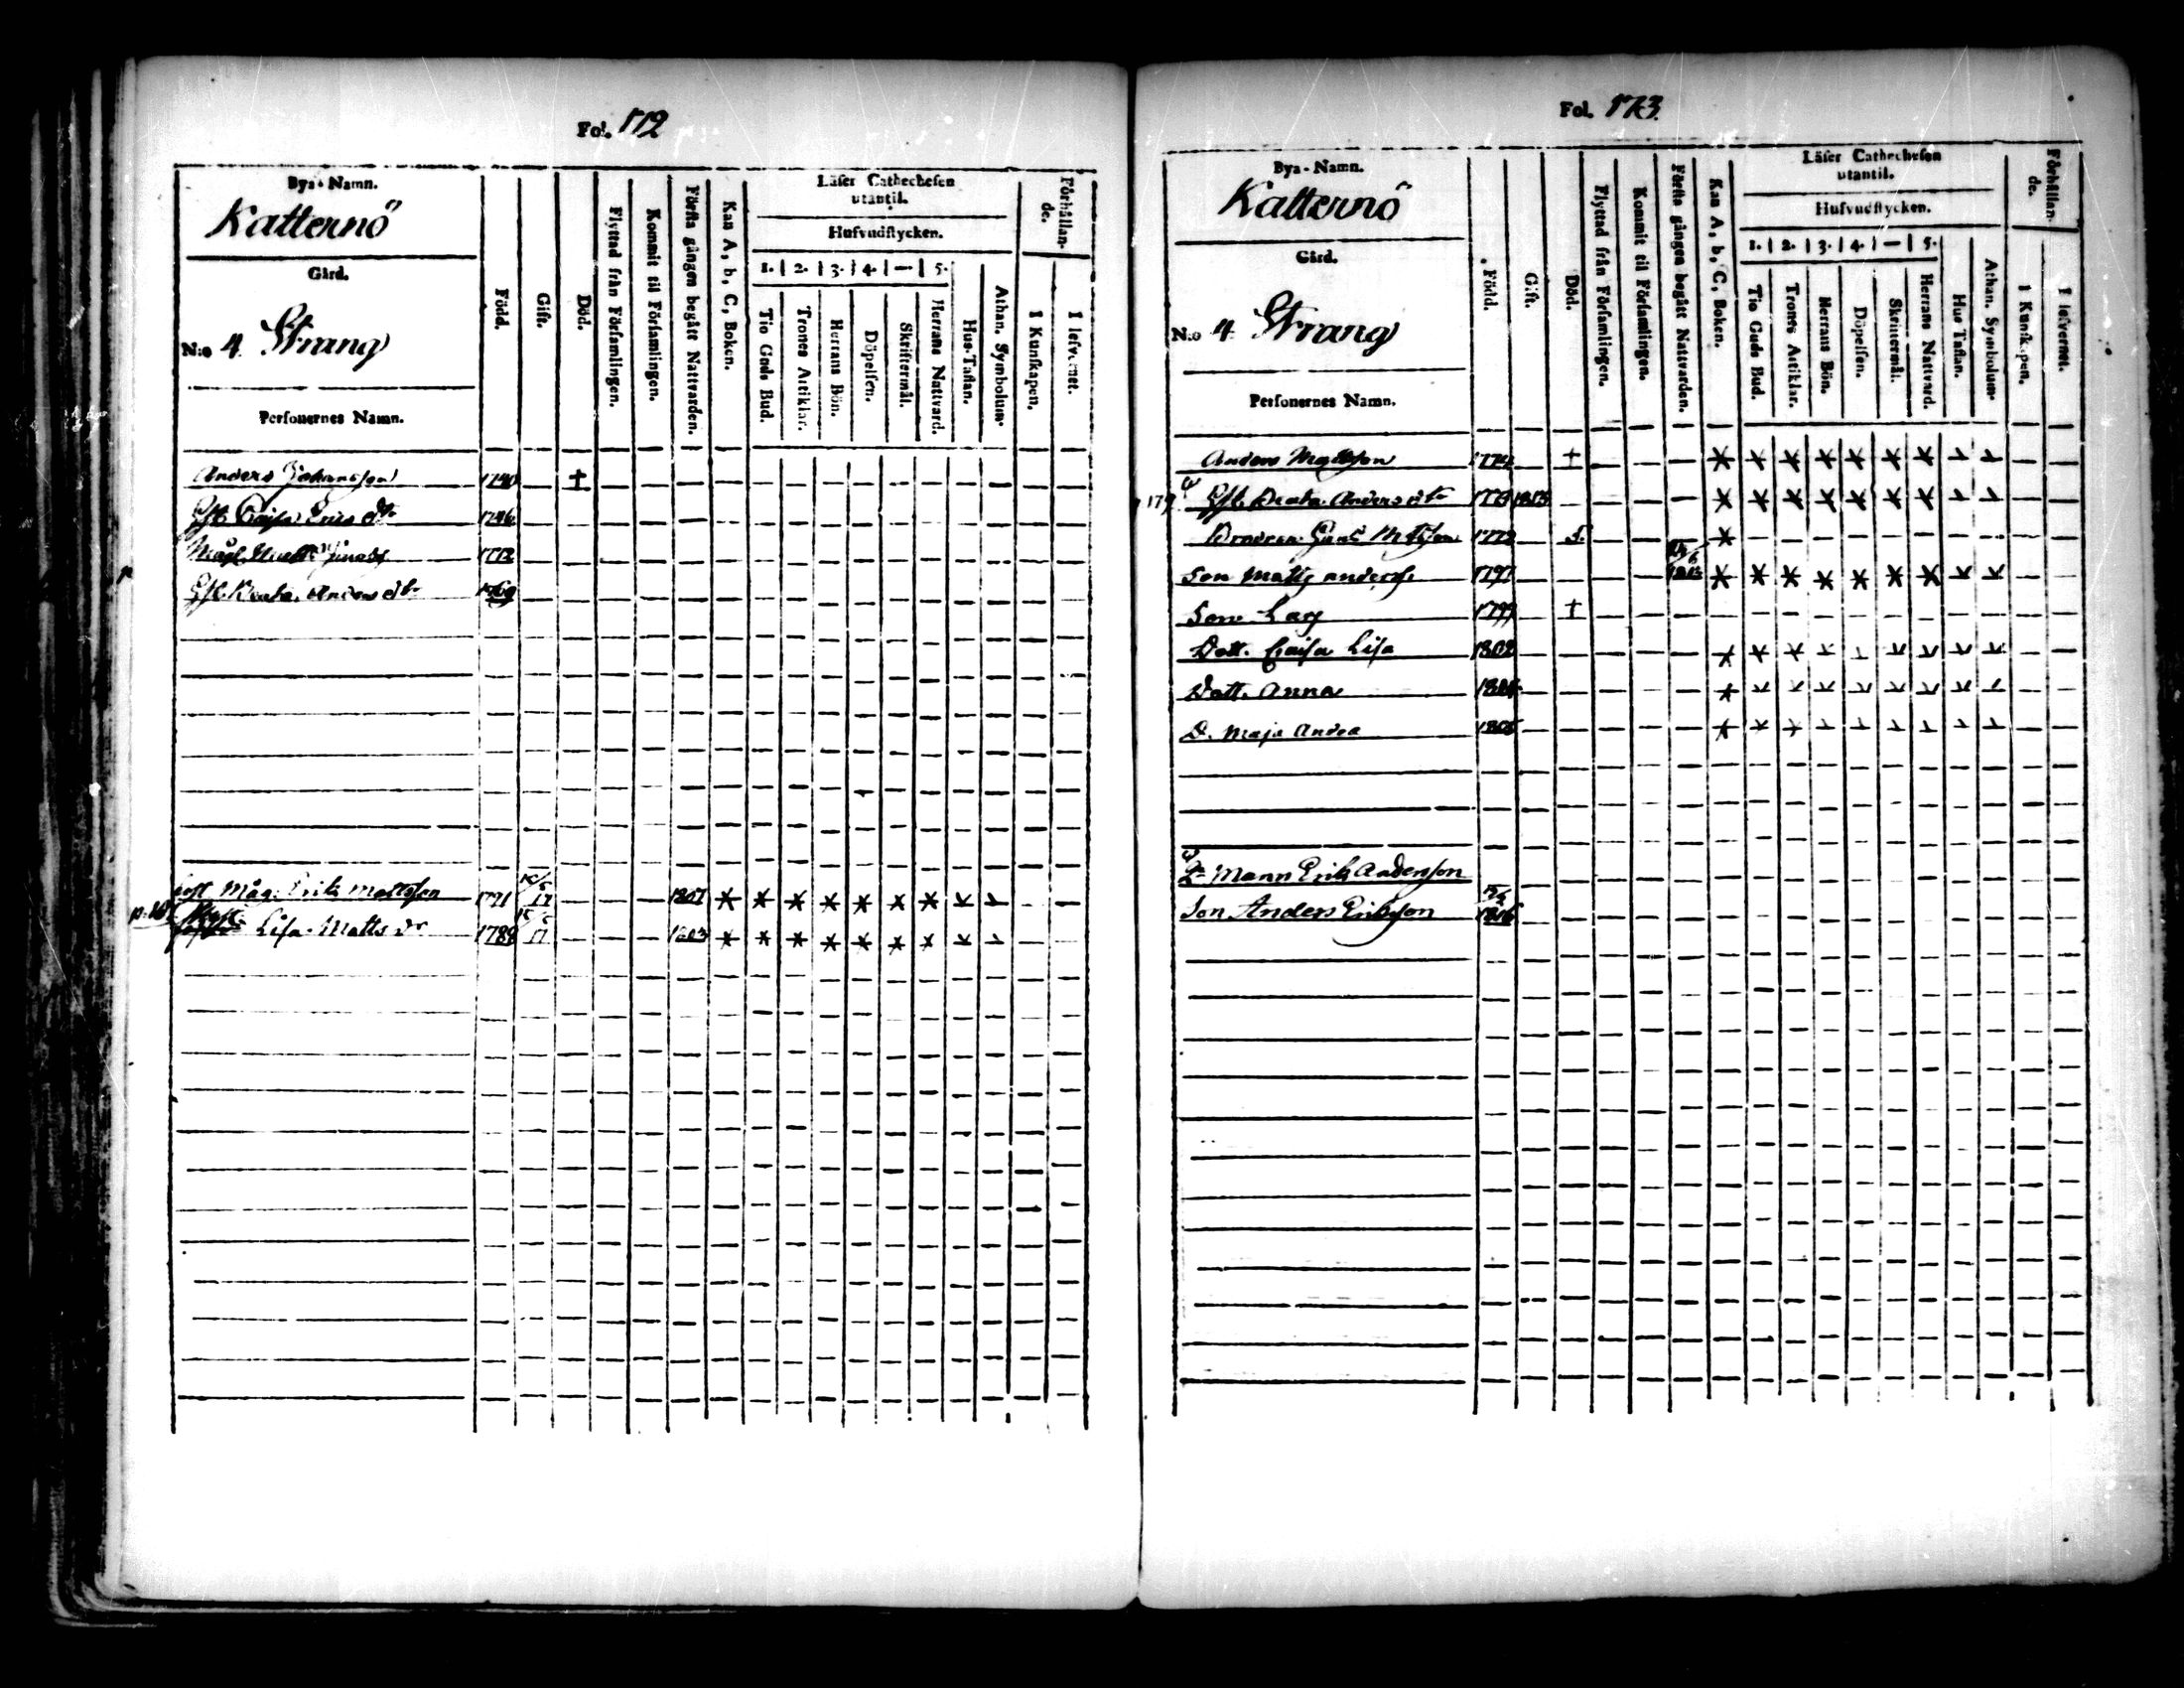 Fol. 172
Bya-Namn.
Katternö
Gård.
N:o 4. Strang
Personernes Namn.
Född.
Gift.
Död.
Flyttad från Församlingen.
Kommit til Församlingen.
Första gången begått Nattvarden.
Kan A, b, C, Boken.
Läser Cathechesen
utantil.
Hufvudstycken.
1. 2. 3. 4. — 5.
Tio Guds Bud.
Trones Artiklar.
Herrans Bön.
Döpelsen.
Skriftermål.
Herrans Nattvard.
Hus-Taflan.
Athan. Symbolum.
Förhållan-
de.
I Kunskapen.
I lefvernet.
Anders Johansson 1740 †
Hst. Caisa Ersdtr 1746
Måg Matts 1772
Hst. Beata Andersdtr 1769
Måg. Erik Mattsson 1791 17 1807
Lisa Mattsdr 1789 17 1803
Fol. 173.
Bya-Namn.
Katternö
Gård.
N:o 4 Strang
Personernes Namn.
Född.
Gift.
Död.
Flyttad från Församlingen.
Kommit til Församlingen.
Första gången begått Nattvarden.
Kan A, b, C, Boken.
Läser Cathechesen
utantil.
Hufvudstycken.
1. 2. 3. 4. — 5.
Tio Guds Bud.
Trones Artiklar.
Herrans Bön.
Döpelsen.
Skriftermål.
Herrans Nattvard.
Hus Taflan.
Athan. Symbolum.
Förhållan-
de.
I Kunskapen.
I lefvernet.
Anders Mattsson 1774 †
Hst. Beata Andersdtr 1773 1813
Brodren Mattson 1772
Son Matts Anderss. 1797 1813
Son Lars 1799 †
Dott. Caisa Lisa 1802
Dott. Anna
D. Maja Andrea 1808
2:e Mann Erik Andersson
Son Anders Eriksson 1816